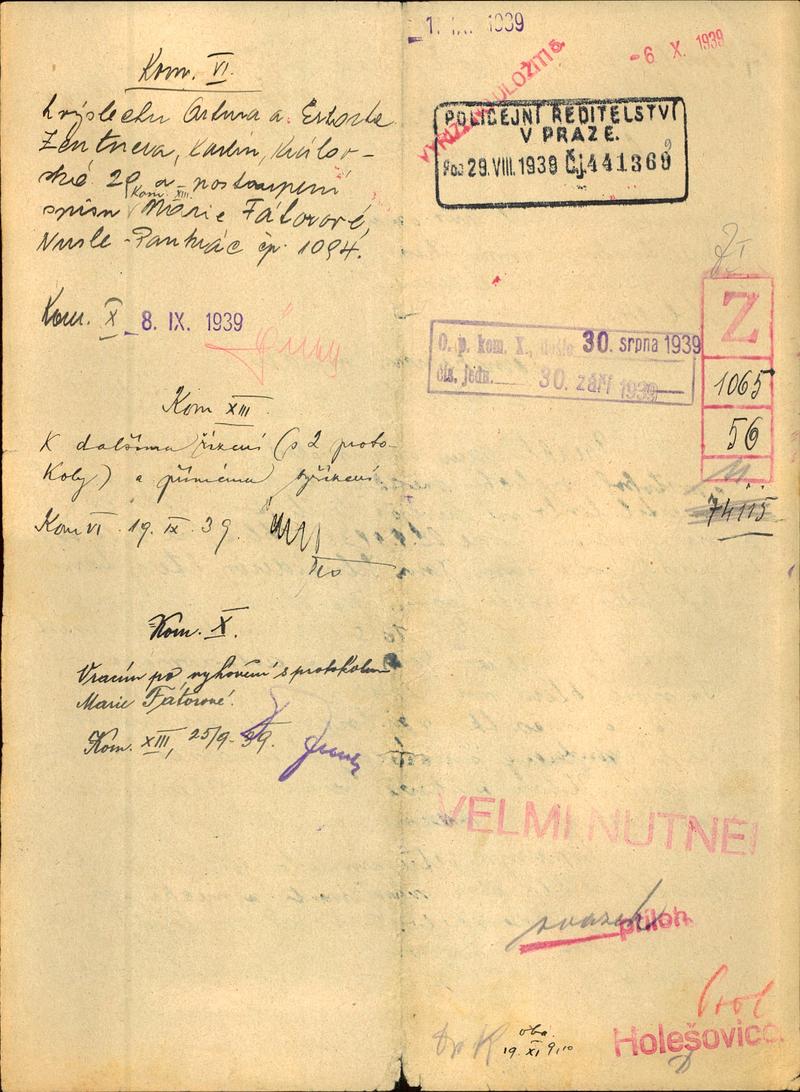 Kom. VI.
k výslechu Artura a Ernesta
Zentnera, Karlín, Králov-
ské 29 a postoupení
Kom. XIII.
spisu Marie Fátorové,
Nusle-Pankrác čp. 1094.
Kom. X 8. IX. 1939
Kom XIII.
K dalšímu řízení (s 2 proto-
koly) a přímému vyřízení
Kom VI 19. IX. 39.
Kom. X.
Vracím po vyhovění s protokolem
Marie Fátorové.
Kom. XIII, 25/9-39.
1939
-6. X. 1939
POLICEJNÍ ŘEDITELSTVÍ
V PRAZE.
29. VIII. 1939 Čj. 441369
O. p. kom. X., došlo 30. srpna 1939
čís. jedn. 30. září 1939
Z
1065
56
74115
VELMI NUTNÉ!
svazek
příloh
Holešovice
19. XI